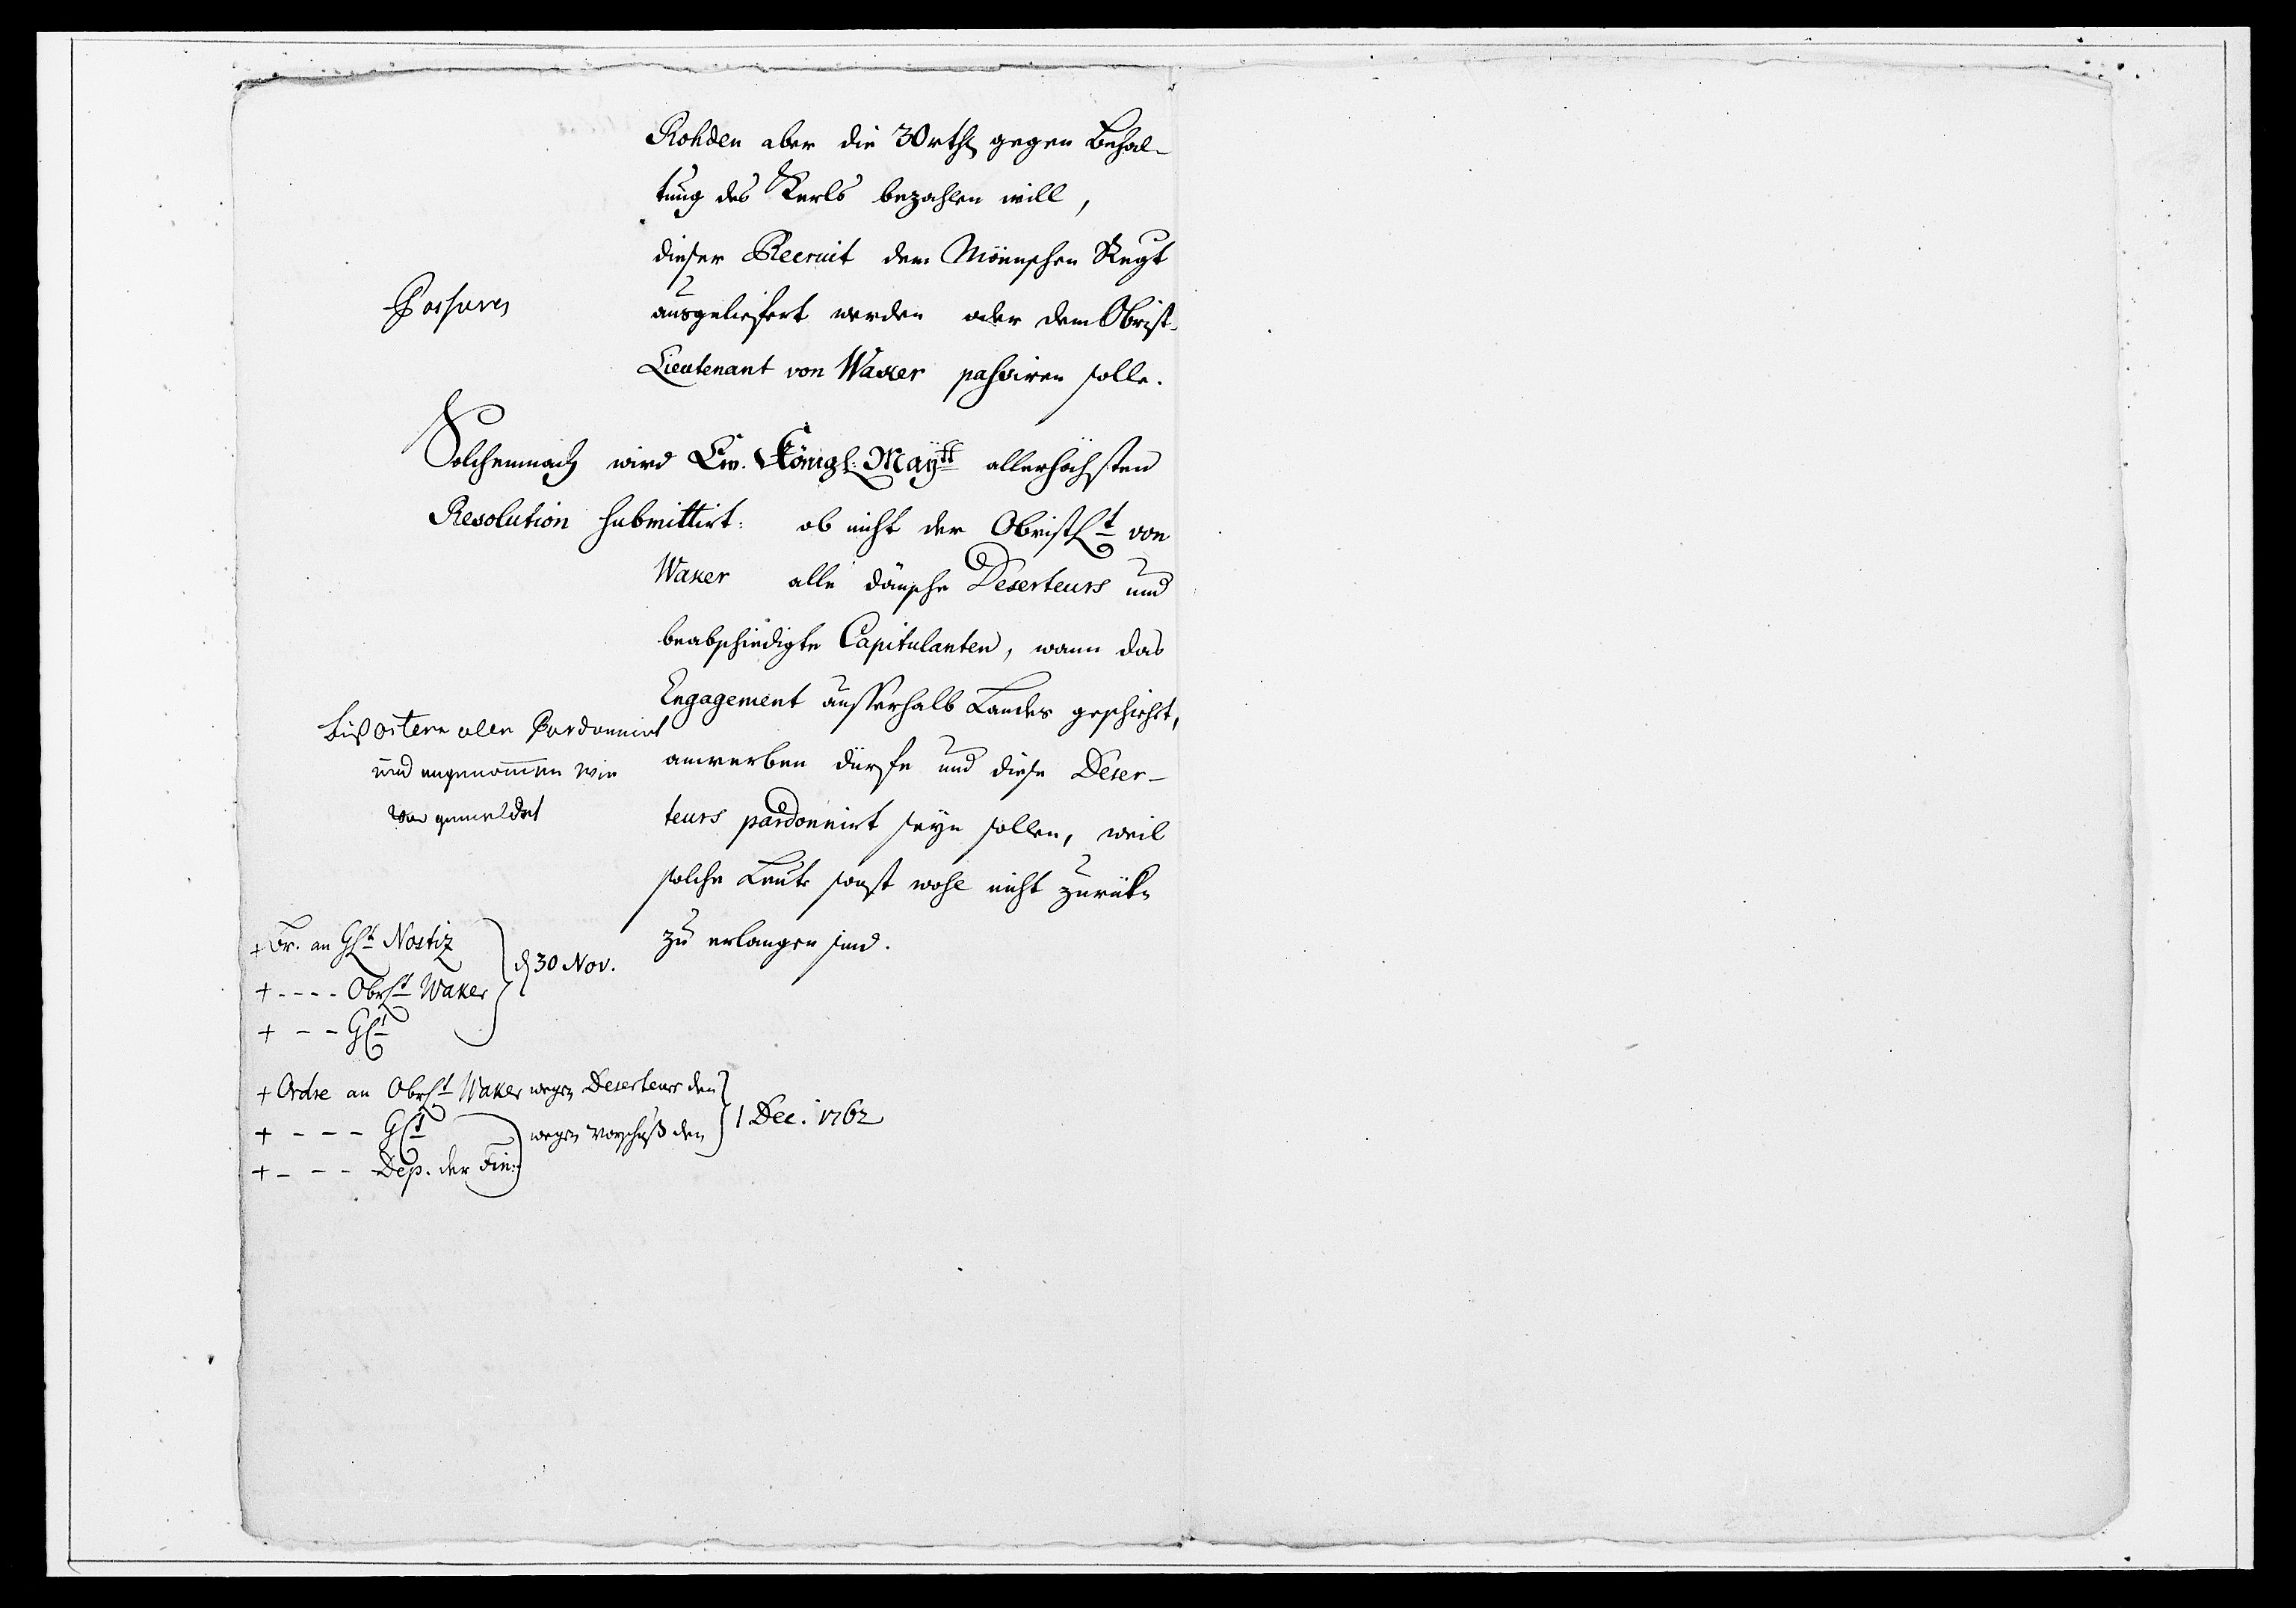 Rohden aber die 30 rthl gegen Behal-
tung des Kerls bezahlen will,
dieser Recruit dem Mönschen Regt
ausgeliefert werden oder dem Obrist-
Lieutenant von Waxer passiren solle.
Passiren
Solchemnach wird Ew. Königl: Maytt allerhöchsten
Resolution submittirt: ob nicht der ObristLt von
Waxer alle dänsche Deserteurs und
beabschiedigte Capitulanten, wann das
Engagement ausserhalb Landes geschieht,
anwerben dürfe und diese Deser-
teurs pardonnirt seyn sollen, weil
solche Leute sonst wohl nicht zurük-
zu erlangen sind.
biß ostern alle Pardonnirt
und angenommen wie
vor gemeldet
+ Br. an GLt Nostiz
+ - - - - ObrLt Waxer } d 30 Nov.
+ - - GCt
+ Ordre an ObrLt Waxer wegen Deserteurs den
+ - - - - GCt } wegen Vorschuß den } 1 Dec. 1762
+ - - - Dep. der Fin: